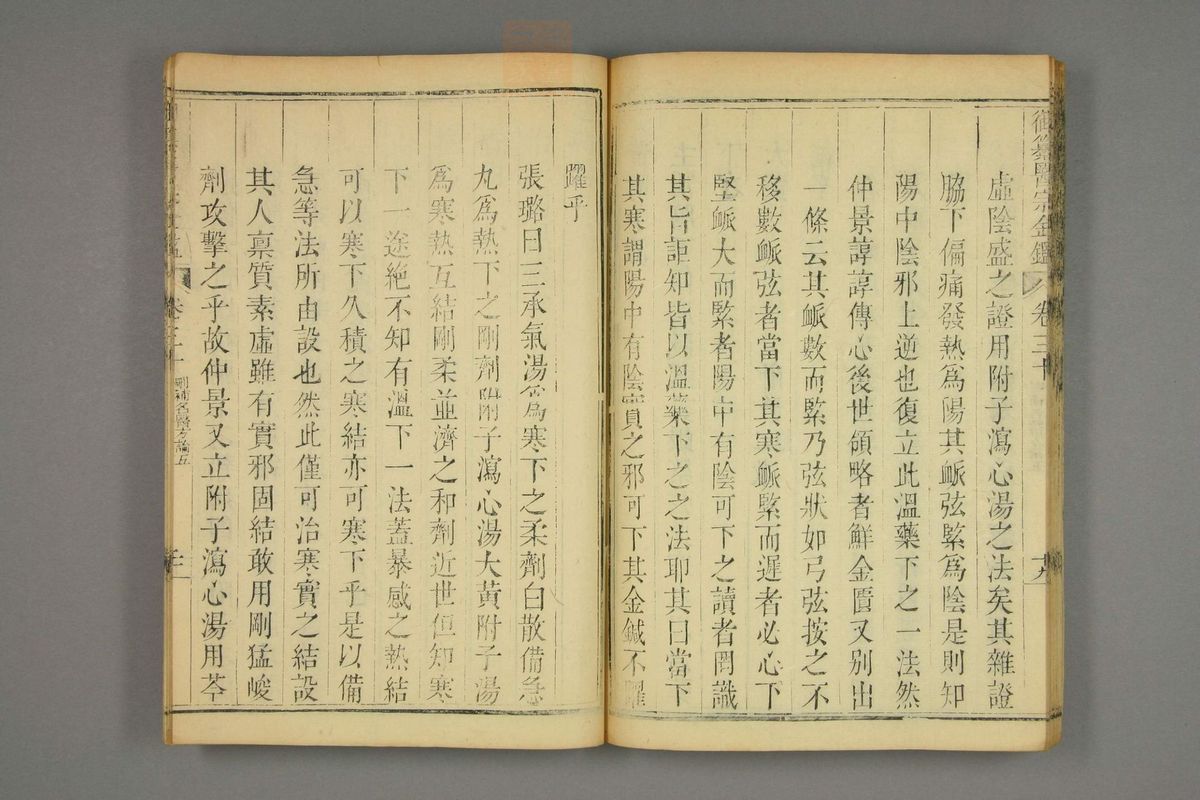 御纂醫宗金鑑 卷三十
虛陰盛之證用附子瀉心湯之法矣其雜證
脇下偏痛發熱爲陽其脈弦緊爲陰是則知
陽中陰邪上逆也復立此溫藥下之一法然
仲景諄諄傳心後世領略者鮮金匱又別出
一條云其脈數而緊乃弦狀如弓弦按之不
移數脈弦者當下其寒脈緊而遲者必心下
堅脈大而緊者陽中有陰可下之讀者罔識
其旨詎知皆以溫藥下之之法耶其曰當下
其寒謂陽中有陰實之邪可下其金鍼不躍
躍乎
張璐曰三承氣湯爲寒下之柔劑白散備急
丸爲熱下之剛劑附子瀉心湯大黃附子湯
爲寒熱互結剛柔並濟之和劑近世但知寒
下一途絕不知有溫下一法蓋暴感之熱結
可以寒下久積之寒結亦可寒下乎是以備
急等法所由設也然此僅可治寒實之結設
其人稟質素虛雖有實邪固結敢用剛猛峻
劑攻擊之乎故仲景又立附子瀉心湯用芩
卷三十 刪補名醫方論五